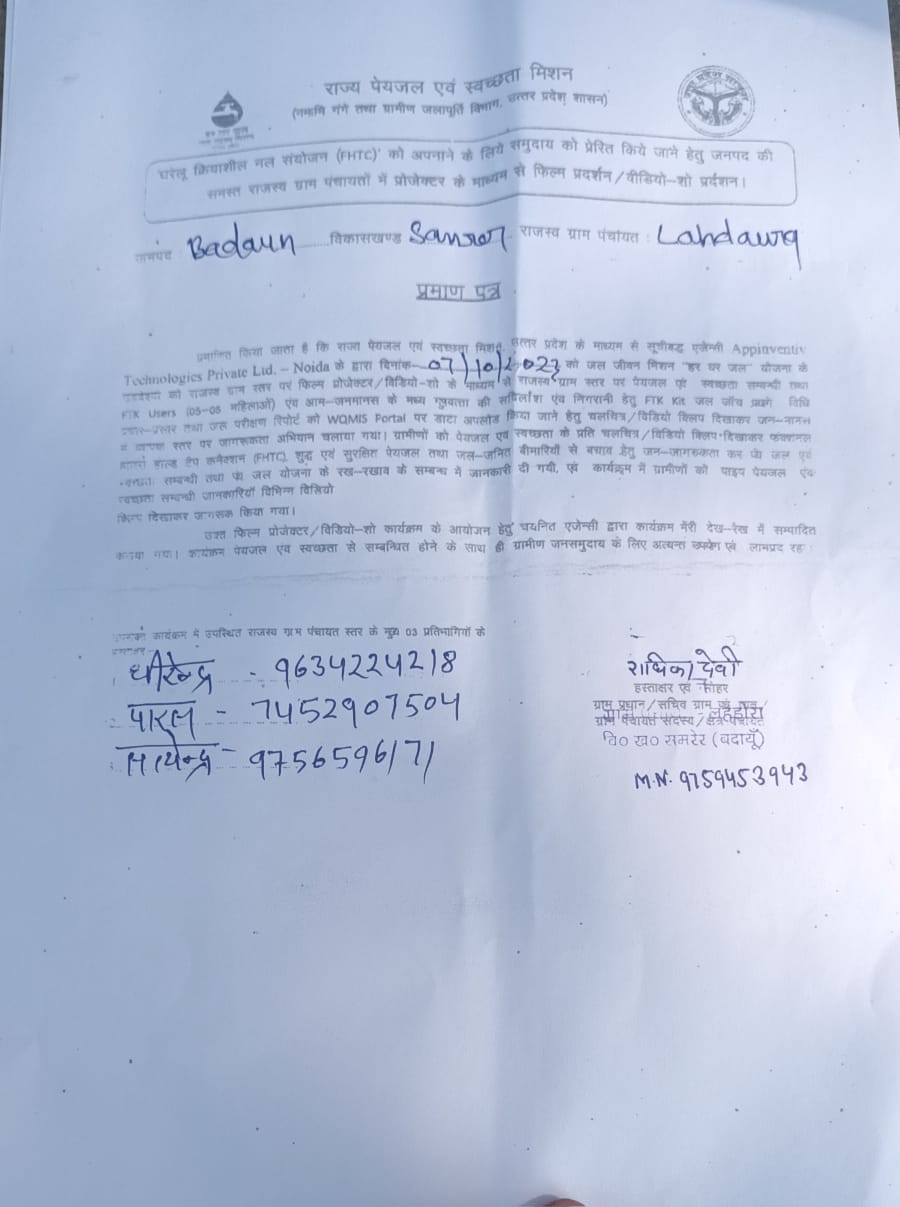 राज्य पेयजल एवं स्वच्छता मिशन
(नमामि गंगे तथा ग्रामीण जलापूर्ति विभाग, उत्तर प्रदेश शासन)
घरेलू क्रियाशील नल संयोजन (FHTC)' को अपनाने के लिये समुदाय को प्रेरित किये जाने हेतु जनपद की
समस्त राजस्व ग्राम पंचायतों में प्रोजेक्टर के माध्यम से फिल्म प्रदर्शन/वीडियो-शो प्रर्दशन।
जनपद : Badaun विकासखण्ड Samrer राजस्व ग्राम पंचायत :
प्रमाण पत्र
प्रमाणित किया जाता है कि राज्य पेयजल एवं स्वच्छता मिशन, उत्तर प्रदेश के माध्यम से सूचीबद्ध एजेन्सी Appinventiv
Technologies Private Ltd. – Noida के द्वारा दिनांक- 07/10/2023 को जल जीवन मिशन "हर घर जल" योजना के
को राजस्व ग्राम स्तर पर फिल्म प्रोजेक्टर/विडियो-शो के माध्यम से राजस्व ग्राम स्तर पर पेयजल एवं स्वच्छता सम्बन्धी तथा
FTK Users (05-05 महिलाओं) एंव आम-जनमानस के मध्य गुणवत्ता की सर्विलांश एंव निगरानी हेतु FTK Kit जल जाँच विधि
प्रचार-प्रसार तथा जल परीक्षण रिपोर्ट को WQMIS Portal पर डाटा अपलोड किया जाने हेतु चलचित्र/विडियो क्लिप दिखाकर जन-मानस
में व्यापक स्तर पर जागरूकता अभियान चलाया गया। ग्रामीणों को पेयजल एवं स्वच्छता के प्रति चलचित्र/विडियो क्लिप-दिखाकर फंक्शनल
हाउस होल्ड टैप कनेक्शन (FHTC), शुद्ध एवं सुरक्षित पेयजल तथा जल-जनित बीमारियों से बचाव हेतु जन-जागरूकता कर जल एवं
स्वच्छता सम्बन्धी तथा जल योजना के रख-रखाव के सम्बन्ध में जानकारी दी गयी, एवं कार्यक्रम में ग्रामीणों को पाइप पेयजल एंव
स्वच्छता सम्बन्धी जानकारियॉ विभिन्न विडियो
क्लिप दिखाकर जागरूक किया गया।
उक्त फिल्म प्रोजेक्टर/विडियो-शो कार्यक्रम के आयोजन हेतु चयनित एजेन्सी द्वारा कार्यक्रम मेरी देख-रेख में सम्पादित
कराया गया। कार्यक्रम पेयजल एंव स्वच्छता से सम्बन्धित होने के साथ ही ग्रामीण जनसमुदाय के लिए अत्यन्त उपयोग एवं लाभप्रद रहा
कार्यक्रम में उपस्थित राजस्व ग्राम पंचायत स्तर के मुख्य 03 प्रतिभागियों के
धीरेन्द्र - 9634224218
पारस - 7452907504
सत्येन्द्र - 9756596171
राधिका देवी
हस्ताक्षर एवं मोहर
ग्राम प्रधान/सचिव ग्राम
ग्राम पंचायत सदस्य/क्षेत्र पंचायत
वि० ख० समरेर (बदायूँ)
M.N. 9759453943